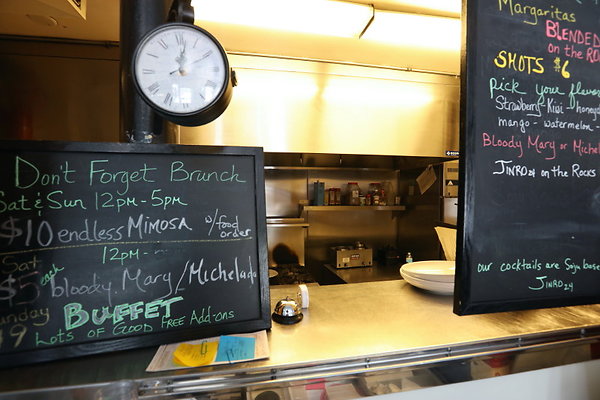 Don't Forget Brunch
Sat & Sun 12pm-5pm
$10 endless Mimosa w/food order
Sat 12pm-
$5 each bloody Mary/Michelada
Sunday BUFFET
19 Lots of Good Free Add-ons
Margaritas
BLENDED
on the RO
SHOTS $6
pick your flavor
Strawberry Kiwi - honeyd
mango - watermelon -
Bloody Mary or Michel
JINRO 24 on the Rocks
our cocktails are Soju base
JINRO24